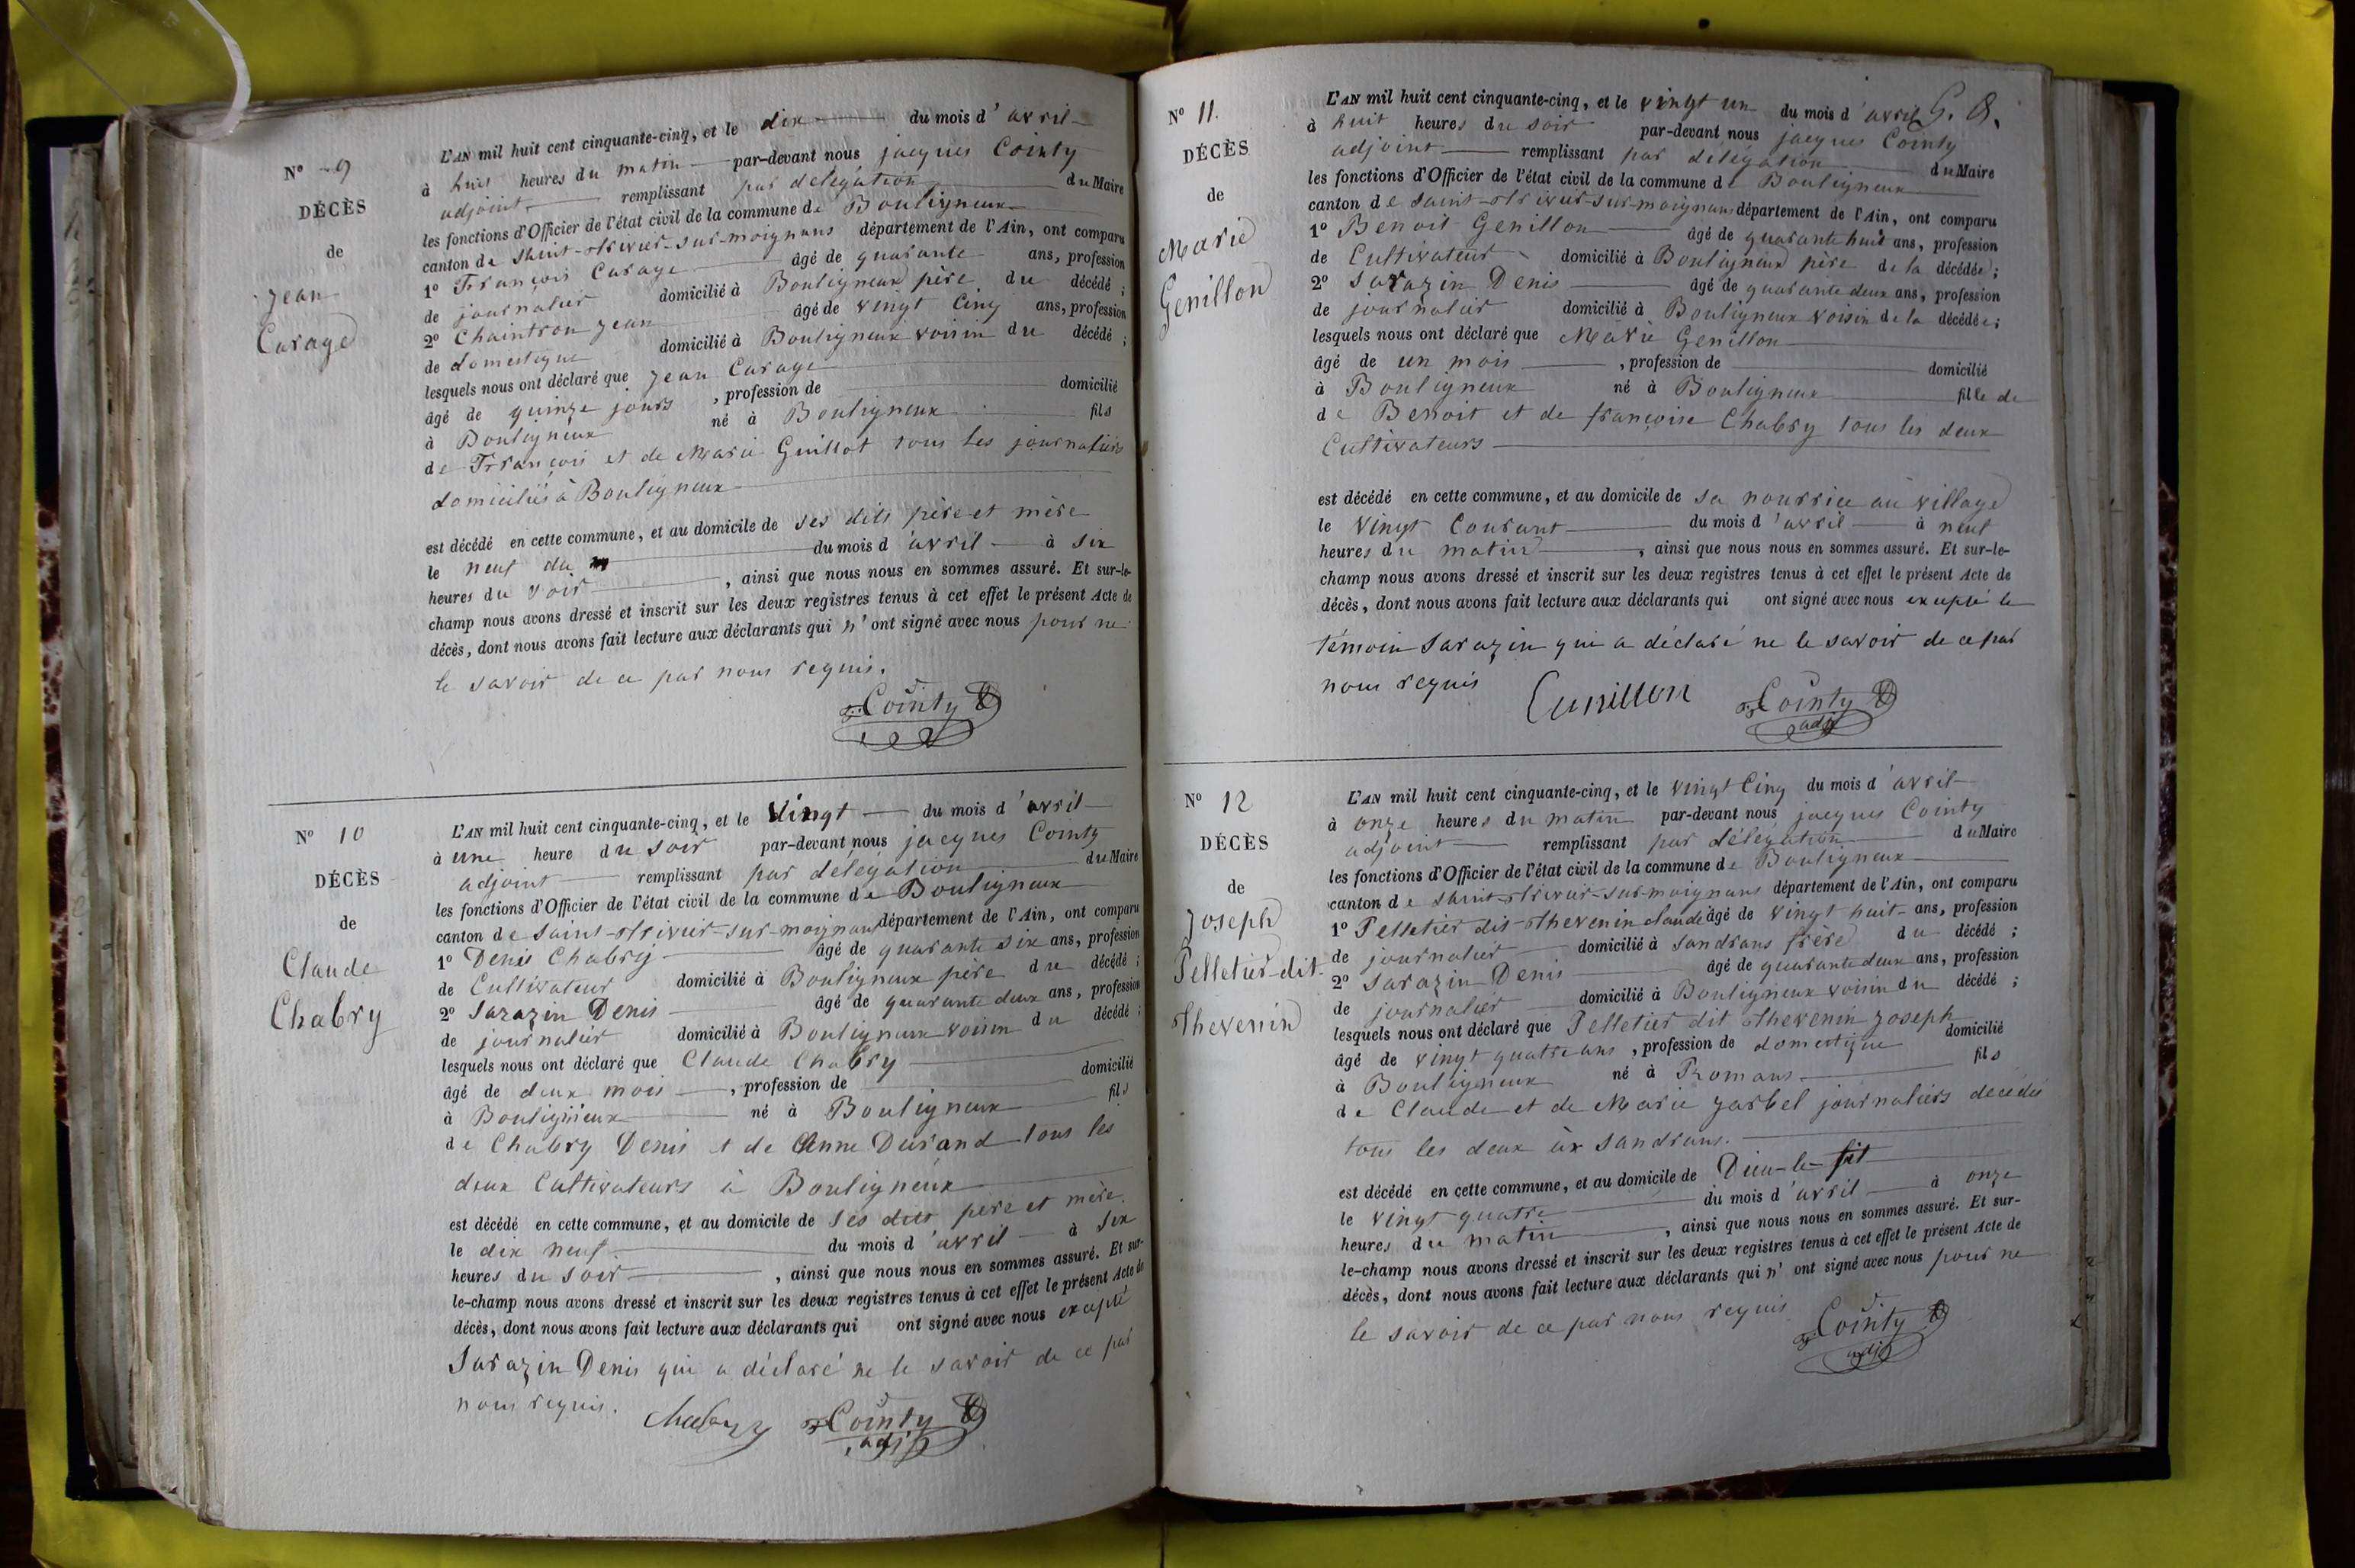 N° 9
DÉCÈS
de
Jean
Carage
L'AN mil huit cent cinquante-cinq, et le dix du mois d'avril
à huit heures du matin par-devant nous jacques Cointy
adjoint remplissant par délégation du Maire
les fonctions d'Officier de l'état civil de la commune de Bouligneux
canton de saint-trivier-sur-moignans département de l'Ain, ont comparu
1° François Carage âgé de quarante ans, profession
de journalier domicilié à Bouligneux père du décédé ;
2° Chaintron jean âgé de vingt cinq ans, profession
de domestique domicilié à Bouligneux voisin du décédé ;
lesquels nous ont déclaré que jean Carage
âgé de quinze jours , profession de domicilié
à Bouligneux né à Bouligneux fils
de François et de Marie Guillot tous les journaliers
domiciliés à Bouligneux
est décédé en cette commune, et au domicile de ses dits père et mère
le neuf du du mois d'avril à six
heures du soir , ainsi que nous nous en sommes assuré. Et sur-le-
champ nous avons dressé et inscrit sur les deux registres tenus à cet effet le présent Acte de
décès, dont nous avons fait lecture aux déclarants qui n'ont signé avec nous pour ne
le savoir de ce par nous requis.
Cointy
N° 10
DÉCÈS
de
Claude
Chabry
L'AN mil huit cent cinquante-cinq, et le Vingt du mois d'avril
à une heure du soir par-devant nous jacques Cointy
adjoint remplissant par délégation du Maire
les fonctions d'Officier de l'état civil de la commune de Bouligneux
canton de saint-trivier-sur-moignans département de l'Ain, ont comparu
1° Denis Chabry âgé de quarante six ans, profession
de Cultivateur domicilié à Bouligneux père du décédé ;
2° Sarazin Denis âgé de quarante deux ans, profession
de journalier domicilié à Bouligneux voisin du décédé ;
lesquels nous ont déclaré que Claude Chabry
âgé de deux mois , profession de domicilié
à Bouligneux né à Bouligneux fils
de Chabry Denis et de Anne Durand tous les
deux Cultivateurs à Bouligneux
est décédé en cette commune, et au domicile de ses dits père et mère
le dix neuf du mois d'avril à six
heures du soir , ainsi que nous nous en sommes assuré. Et sur-
le-champ nous avons dressé et inscrit sur les deux registres tenus à cet effet le présent Acte de
décès, dont nous avons fait lecture aux déclarants qui ont signé avec nous excepté
Sarazin Denis qui a déclaré ne le savoir de ce par
nous requis.
Chabry Cointy
adj
N° 11.
DÉCÈS
de
Marie
Genillon
L'AN mil huit cent cinquante-cinq, et le vingt un du mois d'avril
à huit heures du soir par-devant nous jacques Cointy
adjoint remplissant par délégation du Maire
les fonctions d'Officier de l'état civil de la commune de Bouligneux
canton de saint-trivier-sur-moignans département de l'Ain, ont comparu
1° Benoit Genillon âgé de quarante huit ans, profession
de Cultivateur domicilié à Bouligneux père de la décédée ;
2° Sarazin Denis âgé de quarante deux ans, profession
de journalier domicilié à Bouligneux voisin de la décédée ;
lesquels nous ont déclaré que Marie Genillon
âgé de un mois , profession de domicilié
à Bouligneux né à Bouligneux fille de
de Benoit et de françoise Chabry tous les deux
Cultivateurs
est décédé en cette commune, et au domicile de sa nourrice au village
le vingt Courant du mois d'avril à neuf
heures du matin , ainsi que nous nous en sommes assuré. Et sur-le-
champ nous avons dressé et inscrit sur les deux registres tenus à cet effet le présent Acte de
décès, dont nous avons fait lecture aux déclarants qui ont signé avec nous excepté le
témoin Sarazin qui a déclaré ne le savoir de ce par
nous requis
Cointy
adj
N° 12
DÉCÈS
de
Joseph
Pelletier dit
Thevenin
L'AN mil huit cent cinquante-cinq, et le vingt Cinq du mois d'avril
à onze heures du matin par-devant nous jacques Cointy
adjoint remplissant par délégation du Maire
les fonctions d'Officier de l'état civil de la commune de Bouligneux
canton de saint-trivier-sur-moignans département de l'Ain, ont comparu
1° Pelletier dit Thevenin claude âgé de vingt huit ans, profession
de journalier domicilié à Sandrans frère du décédé ;
2° Sarazin Denis âgé de quarante deux ans, profession
de journalier domicilié à Bouligneux voisin du décédé ;
lesquels nous ont déclaré que Pelletier dit Thevenin joseph
âgé de vingt quatre ans , profession de domestique domicilié
à Bouligneux né à Romans fils
de Claude et de Marie jarbel journaliers décédés
tous les deux à Sandrans.
est décédé en cette commune, et au domicile de Dieu-le-fit
le vingt quatre du mois d'avril à onze
heures du matin , ainsi que nous nous en sommes assuré. Et sur-
le-champ nous avons dressé et inscrit sur les deux registres tenus à cet effet le présent Acte de
décès, dont nous avons fait lecture aux déclarants qui n'ont signé avec nous pour ne
le savoir de ce par nous requis
Cointy
adj